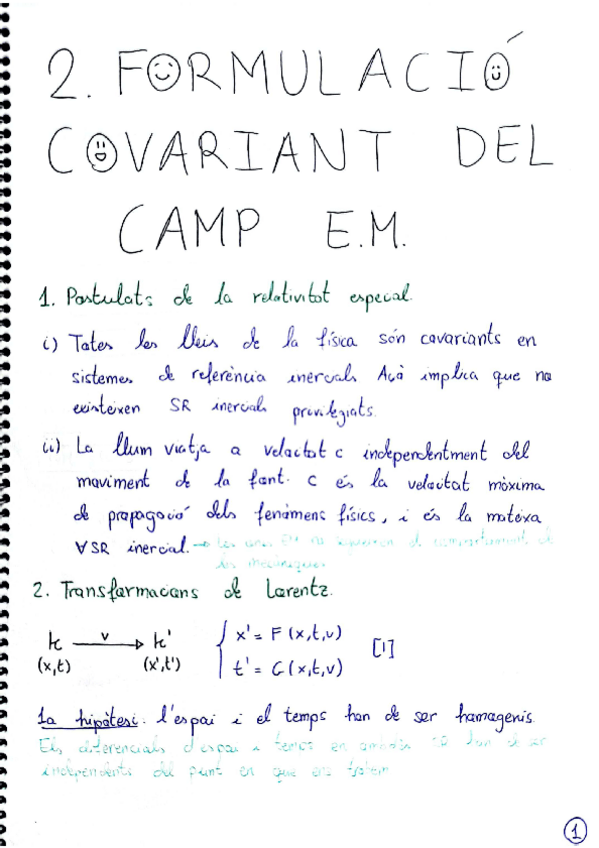 2. FORMULACIÓ
COVARIANT DEL
CAMP E.M.
1. Postulats de la relativitat especial.
i) Totes les lleis de la física són covariants en
sistemes de referència inercials. Açò implica que no
existeixen SR inercials privilegiats.
ii) La llum viatja a velocitat c independentment del
moviment de la font. c és la velocitat màxima
de propagació dels fenòmens físics, i és la mateixa
∀ SR inercial. → Les ones EM no segueixen el comportament de
les mecàniques
2. Transformacions de Lorentz.
k —v→ k' { x' = F(x,t,v)
(x,t) (x',t') t' = G(x,t,v) [1]
1a hipòtesi: l'espai i el temps han de ser homogenis.
Els diferencials d'espai i temps en ambdós SR han de ser
independents del punt en que ens trobem
1